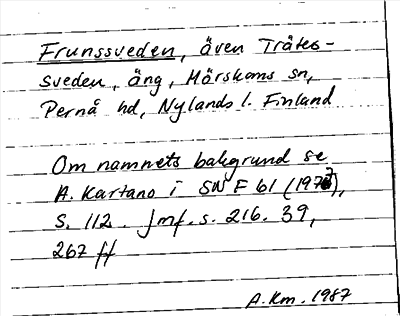 Frunssveden, även Träter-
sveden, äng, Mörskoms sn,
Pernå hd, Nylands l. Finland
Om namnets bakgrund se
A. Kartano i SNF 61 (1973),
s. 112. Jmf. s. 216. 39,
267 ff
A.Km. 1987